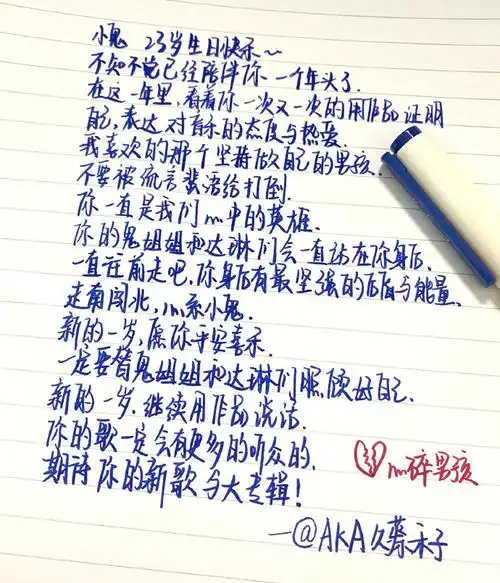 小鬼 23岁生日快乐~
不知不觉已经陪伴你一个年头了.
在这一年里,看着你一次又一次的用作品证明
自己,表达对音乐的态度与热爱.
我喜欢的那个坚持做自己的男孩.
不要被流言蜚语给打倒.
你一直是我们心中的英雄.
你的鬼姐姐和达琳们会一直站在你身后.
一直往前走吧,你身后有最坚强的后盾与能量.
走南闯北,心系小鬼.
新的一岁,愿你平安喜乐.
一定要替鬼姐姐和达琳们照顾好自己.
新的一岁.继续用作品说话.
你的歌一定会有更多的听众的.
期待你的新歌与大专辑!
心碎男孩
—@AKA久蔡禾子